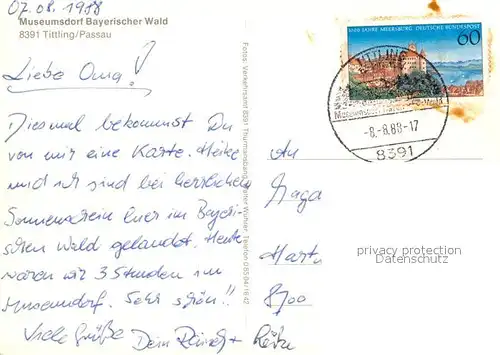 07.08.1988
Museumsdorf Bayerischer Wald
8391 Tittling/Passau
Liebe Oma!
Diesmal bekommst Du
von mir eine Karte. Heike
und ich sind bei herrlichem
Sonnenschein hier im Bayeri-
schen Wald gelandet. Heute
waren wir 3 Stunden im
Museumsdorf. Sehr schön!!
Viele Grüße Dein
Fotos: Verkehrsamt 8391 Thurmansbang
Telefon
1000 JAHRE MEERSBURG DEUTSCHE BUNDESPOST
60
TITTLING
-8.-8.88-17
8391
An
8700
privacy protection
Datenschutz